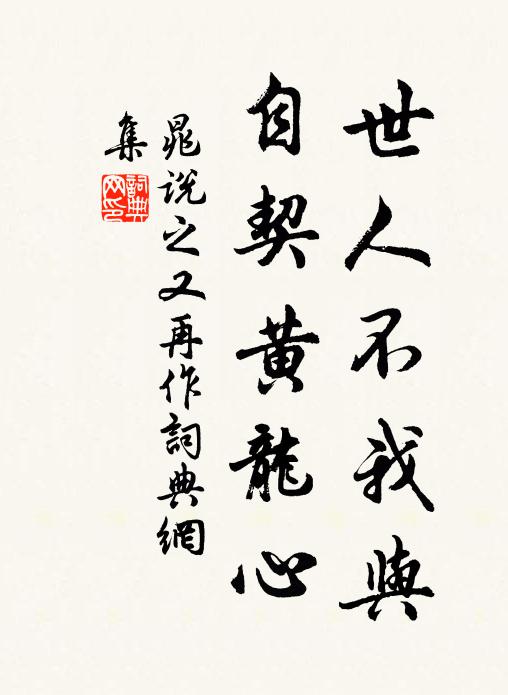 世人不我與
自契黃龍心
晁說之又再作詞典網
集
詞典
网印